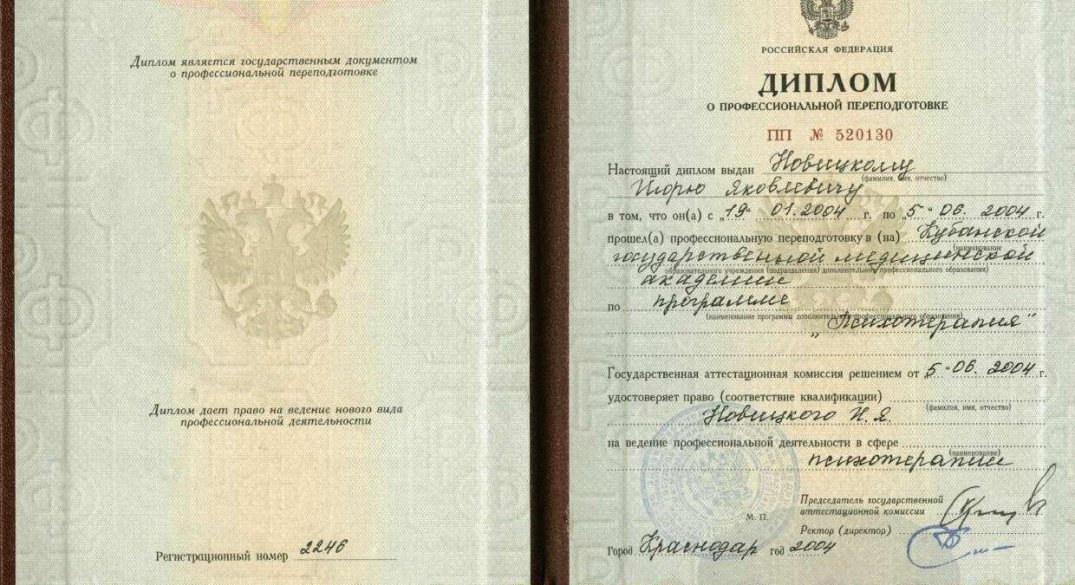 Диплом является государственным документом
о профессиональной переподготовке
Диплом дает право на ведение нового вида
профессиональной деятельности
Регистрационный номер 2246
РОССИЙСКАЯ ФЕДЕРАЦИЯ
ДИПЛОМ
О ПРОФЕССИОНАЛЬНОЙ ПЕРЕПОДГОТОВКЕ
ПП № 520130
Настоящий диплом выдан Новицкому
(фамилия, имя, отчество)
Игорю Яковлевичу
в том, что он(а) с „19“ 01.2004 г. по „5“ 06. 2004 г.
прошел(а) профессиональную переподготовку в (на) Кубанской
(наименование
государственной медицинской
образовательного учреждения (подразделения) дополнительного профессионального образования)
академии
по программе
(наименование программы дополнительного профессионального образования)
„Психотерапия“
Государственная аттестационная комиссия решением от 5-06. 2004 г.
удостоверяет право (соответствие квалификации)
(фамилия, имя, отчество)
Новицкого И.Я.
на ведение профессиональной деятельности в сфере
(наименование)
психотерапии
Председатель государственной
аттестационной комиссии
М. П.
Ректор (директор)
Город Краснодар год 2004